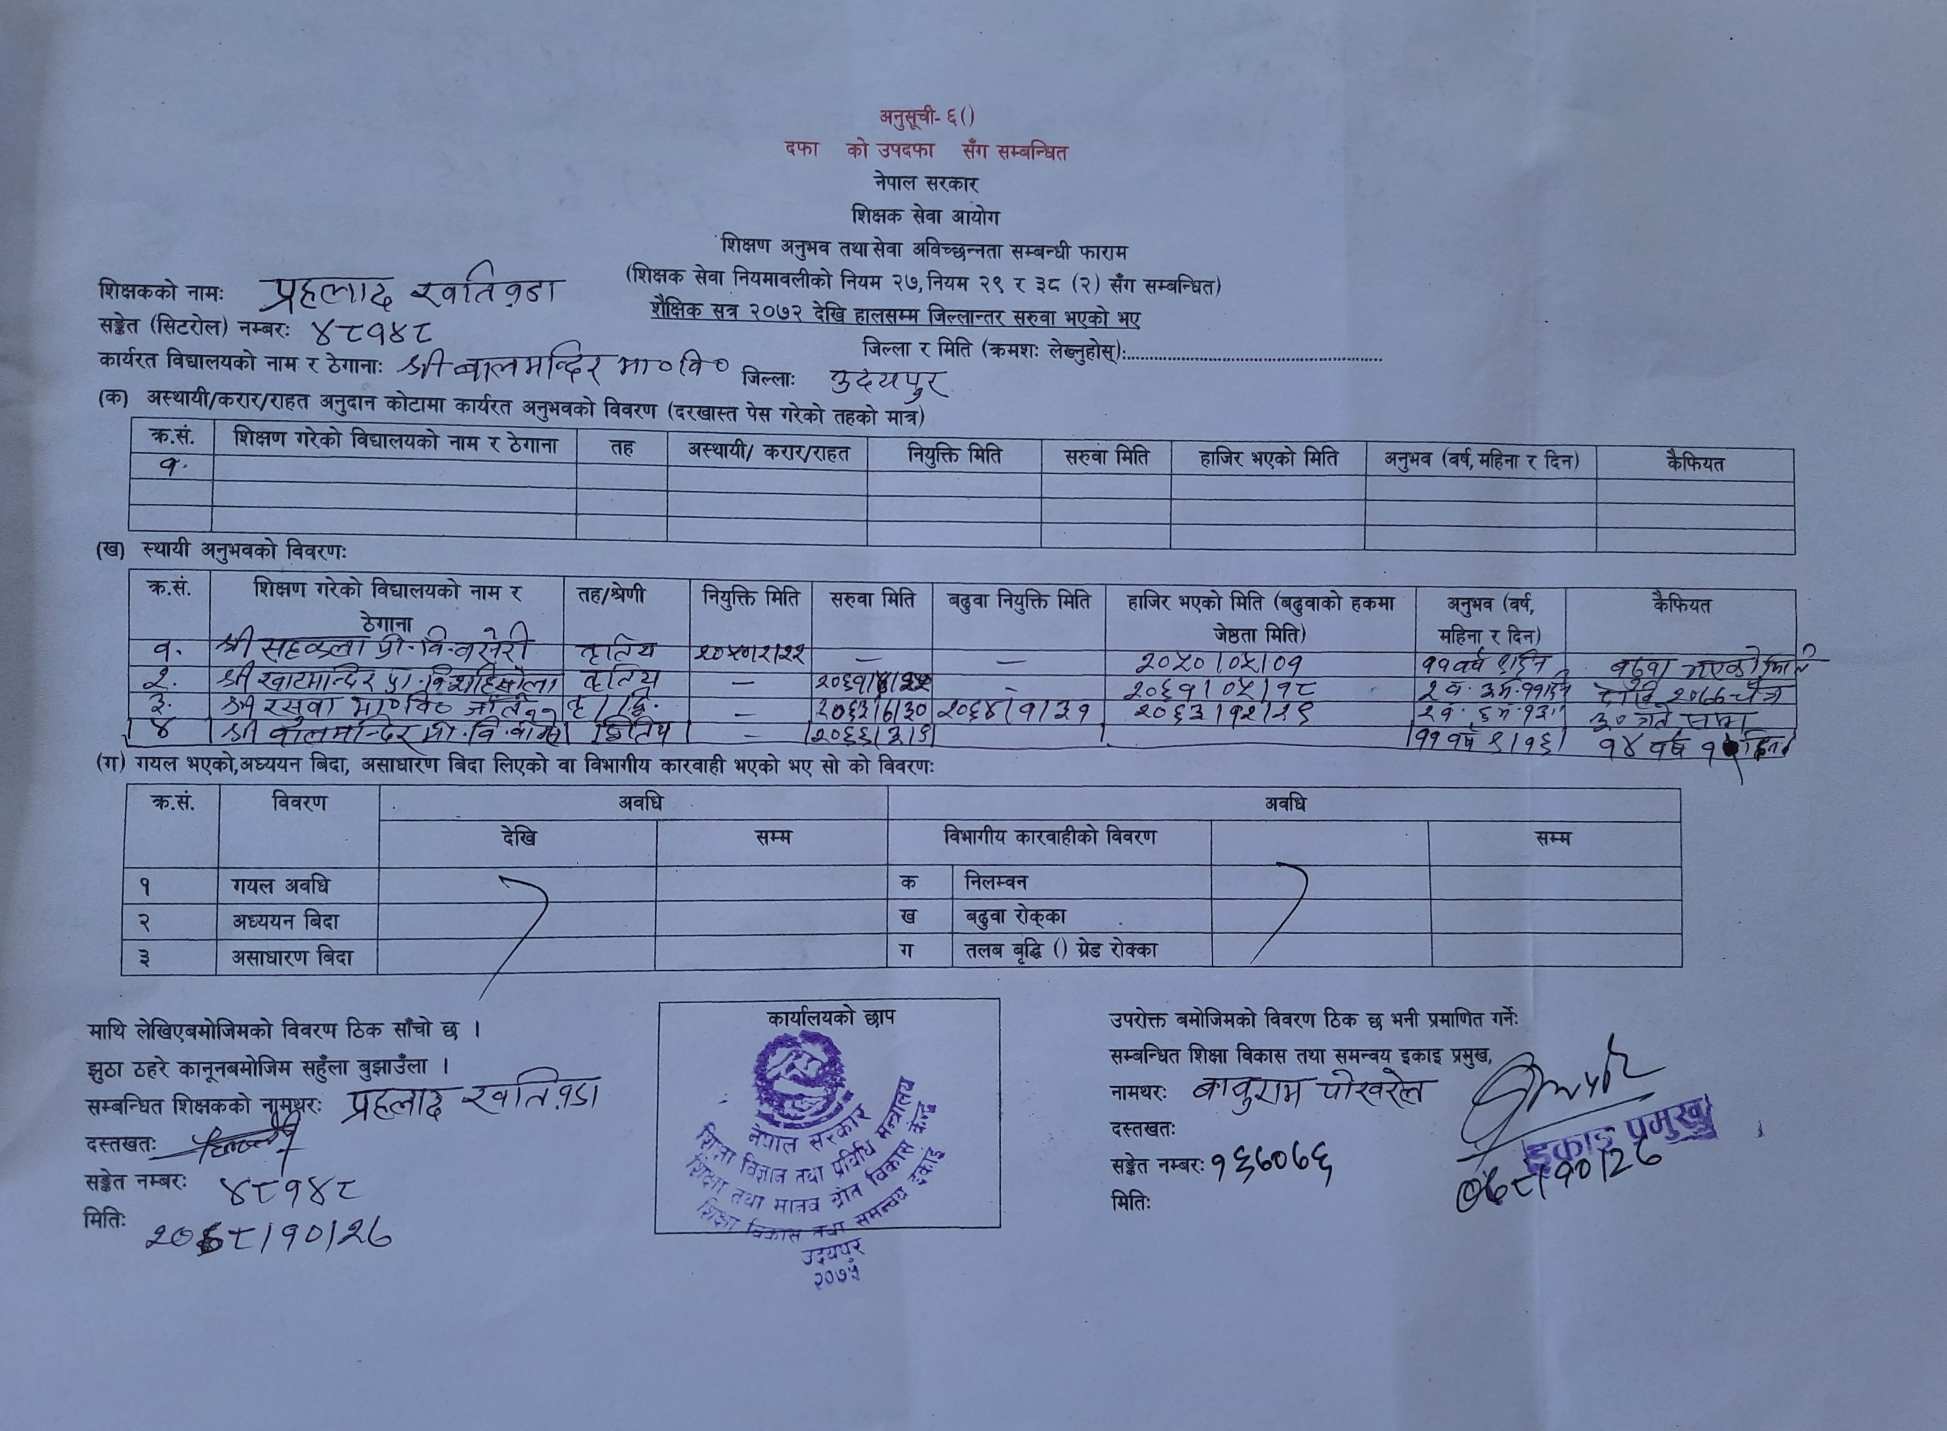 अनुसूची- ६()
दफा को उपदफा सँग सम्बन्धित
नेपाल सरकार
शिक्षक सेवा आयोग
शिक्षण अनुभव तथा सेवा अविच्छन्नता सम्बन्धी फाराम
(शिक्षक सेवा नियमावलीको नियम २७, नियम २९ र ३८ (२) सँग सम्बन्धित)
शिक्षकको नामः प्रहलाद खतिवडा
शैक्षिक सत्र २०७२ देखि हालसम्म जिल्लान्तर सरुवा भएको भए
सङ्केत (सिटरोल) नम्बरः ४८१४८
जिल्ला र मिति (क्रमशः लेख्नुहोस्):
कार्यरत विद्यालयको नाम र ठेगानाः श्री बालमन्दिर मा०वि० जिल्लाः उदयपुर
(क) अस्थायी/करार/राहत अनुदान कोटामा कार्यरत अनुभवको विवरण (दरखास्त पेस गरेको तहको मात्र)
क्र.सं. शिक्षण गरेको विद्यालयको नाम र ठेगाना तह अस्थायी/ करार/राहत नियुक्ति मिति सरुवा मिति हाजिर भएको मिति अनुभव (वर्ष, महिना र दिन) कैफियत
१.
(ख) स्थायी अनुभवको विवरणः
क्र.सं. शिक्षण गरेको विद्यालयको नाम र ठेगाना तह/श्रेणी नियुक्ति मिति सरुवा मिति बढुवा नियुक्ति मिति हाजिर भएको मिति (बढुवाको हकमा जेष्ठता मिति) अनुभव (वर्ष, महिना र दिन) कैफियत
१. श्री प्रा.वि. तृतिय — — २०५०।०५।०१ ११ वर्ष बढुवा भएको मिति
२. श्री तृतिय — - २०६१।०५।१८ देखि चैत्र
३. श्री रसुवा मा०वि० - २०६३।७।३० २०६४।१।३१ २०६३।१२।२६ ३० गते सम्म
४ श्री बालमन्दिर द्वितिय - २०६६।३।६ ११ वर्ष ९।१६ १४ वर्ष
(ग) गयल भएको,अध्ययन बिदा, असाधारण बिदा लिएको वा विभागीय कारवाही भएको भए सो को विवरणः
क्र.सं. विवरण अवधि अवधि
देखि सम्म विभागीय कारवाहीको विवरण सम्म
१ गयल अवधि क निलम्वन
२ अध्ययन बिदा ख बढुवा रोक्का
३ असाधारण बिदा ग तलब बृद्धि () ग्रेड रोक्का
माथि लेखिएबमोजिमको विवरण ठिक साँचो छ ।
झुठा ठहरे कानूनबमोजिम सहुँला बुझाउँला ।
सम्बन्धित शिक्षकको नामथरः प्रहलाद खतिवडा
दस्तखतः
सङ्केत नम्बरः ४८१४८
मितिः २०७८।१०।२७
कार्यालयको छाप
नेपाल सरकार
शिक्षा विज्ञान तथा प्रविधि मन्त्रालय
शिक्षा तथा मानव श्रोत विकास केन्द्र
शिक्षा विकास तथा समन्वय इकाई
उदयपुर
२०७५
उपरोक्त बमोजिमको विवरण ठिक छ भनी प्रमाणित गर्नेः
सम्बन्धित शिक्षा विकास तथा समन्वय इकाइ प्रमुख,
नामथरः बाबुराम पोखरेल
दस्तखतः
इकाइ प्रमुख
सङ्केत नम्बरः १६७०७६
मितिः ०७८।१०।२७